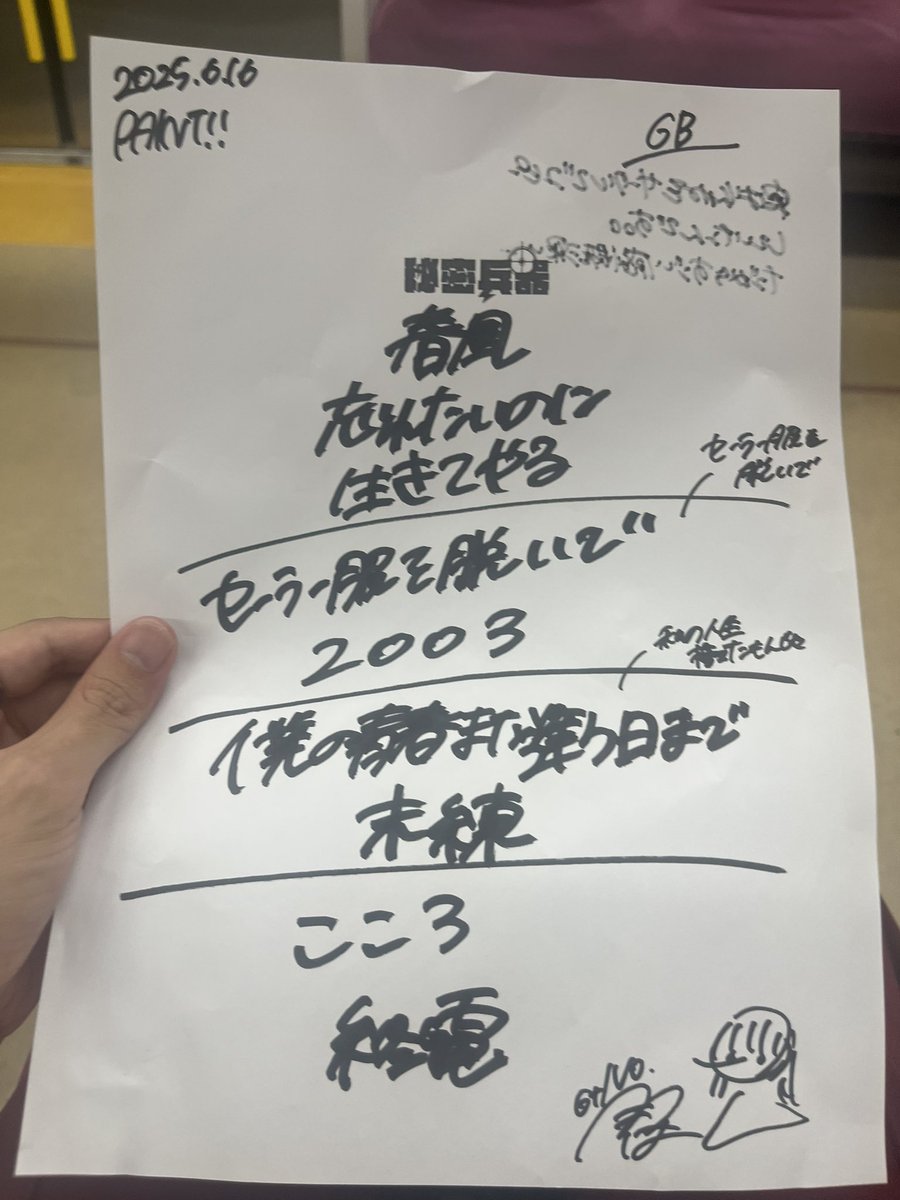 2025.6.16
PAINT!!
GB
春風
忘れたいのに
生きてやる
セーラー服を
脱いで
セーラー服を脱いで
2003
私の人生
僕の青春また逢う日まで
未練
こころ
終電
Gt/Vo.